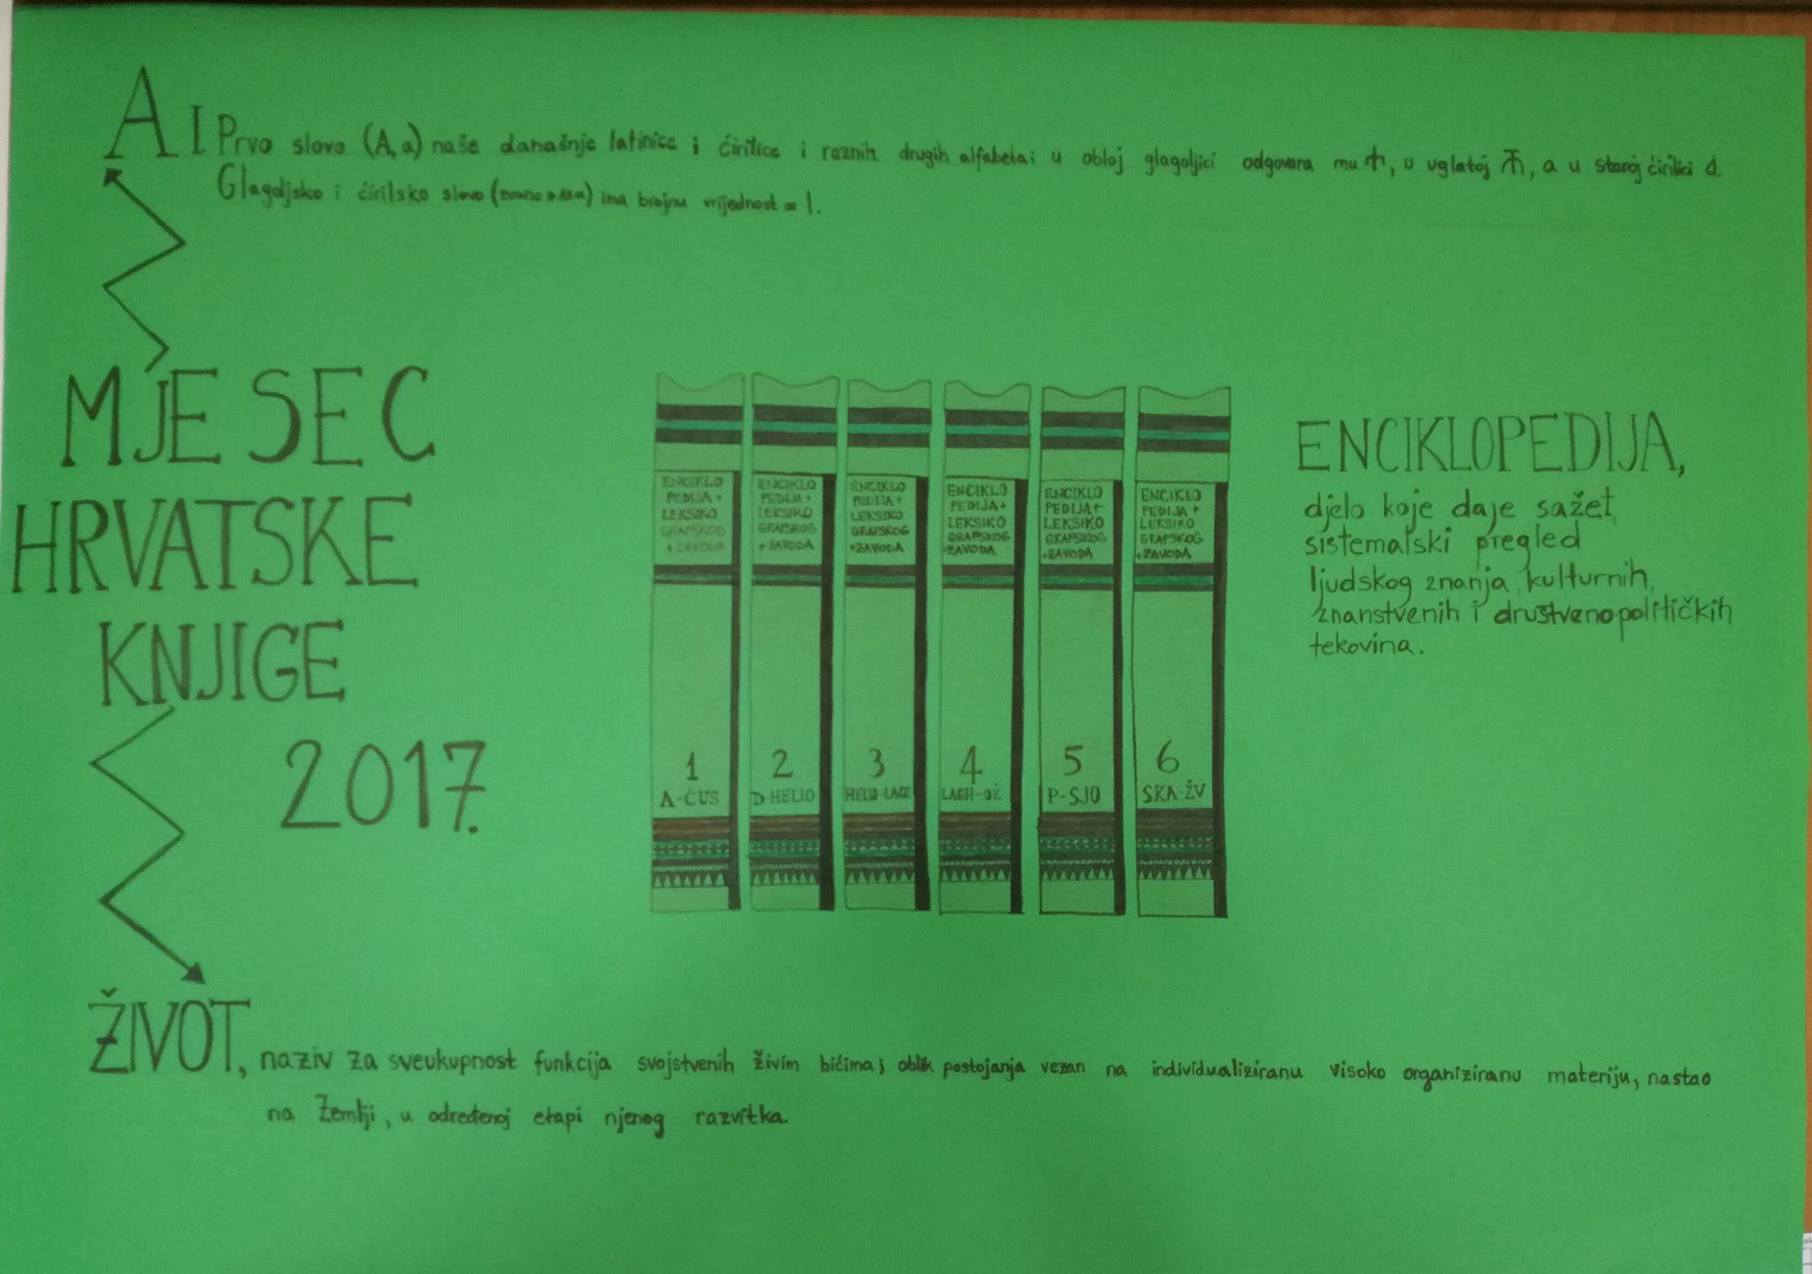 A I Prvo slovo (A, a) naše današnje latinice i ćirilice i raznih drugih alfabeta; u obloj glagoljici odgovara mu Ⰰ, u uglatoj Ⰰ, a u staroj ćirilici
Glagoljsko i ćirilsko slovo (zvano) ima brojnu vrijednost = 1.
MJESEC
HRVATSKE
KNJIGE
2017.
ENCIKLO
PEDIJA+
LEKSIKO
GRAFSKOG
+ZAVODA
1
A-ĆUS
ENCIKLO
PEDIJA+
LEKSIKO
GRAFSKOG
+ZAVODA
2
D-HELIO
ENCIKLO
PEDIJA+
LEKSIKO
GRAFSKOG
+ZAVODA
3
HELIO-LAGE
ENCIKLO
PEDIJA+
LEKSIKO
GRAFSKOG
+ZAVODA
4
LAGH-OŽ
ENCIKLO
PEDIJA+
LEKSIKO
GRAFSKOG
+ZAVODA
5
P-SJO
ENCIKLO
PEDIJA+
LEKSIKO
GRAFSKOG
+ZAVODA
6
SKA-ŽV
ENCIKLOPEDIJA,
djelo koje daje sažet,
sistematski pregled
ljudskog znanja, kulturnih,
znanstvenih i društvenopolitičkih
tekovina.
ŽIVOT, naziv za sveukupnost funkcija svojstvenih živim bićima; oblik postojanja vezan na individualiziranu visoko organiziranu materiju, nastao
na Zemlji, u određenoj etapi njenog razvitka.